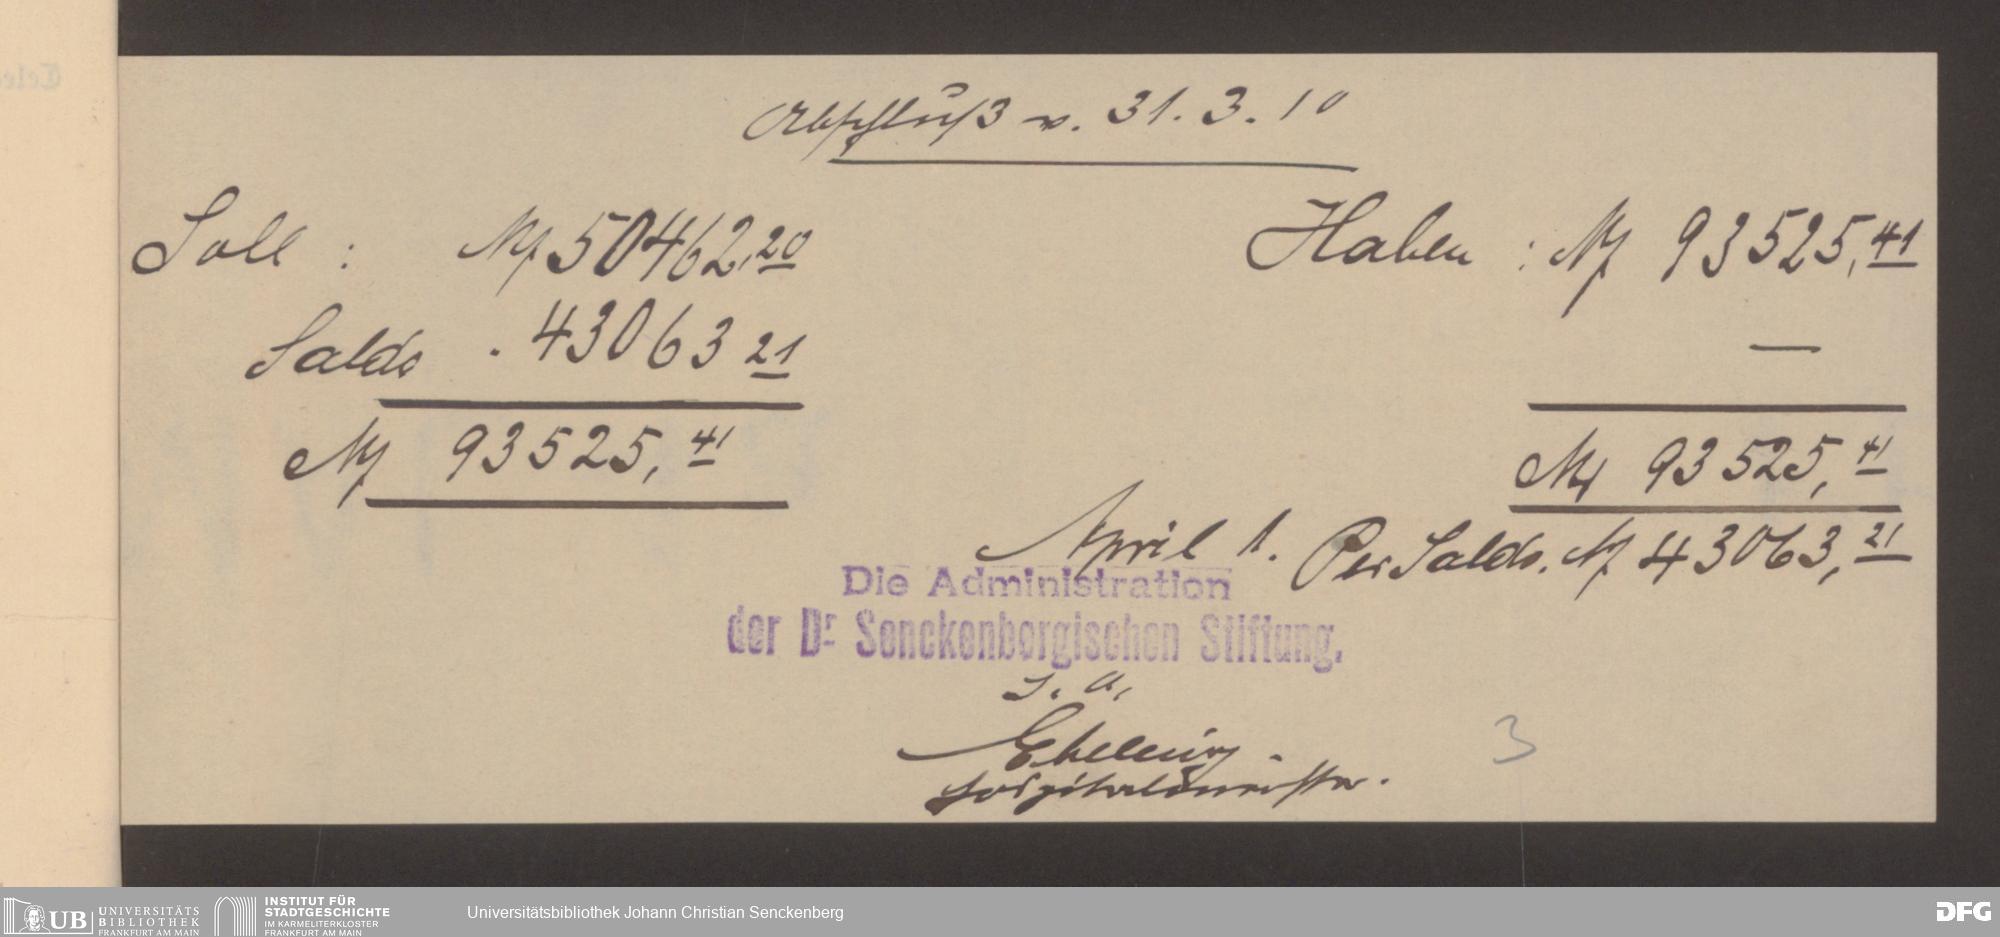 Abschluß v. 31. 3. 10
Soll : M 50462,20 Haben : M 93525,41
Saldo . 43063 21 —
M 93525,41 M 93525,41
April 1. Per Saldo. M 43063,21
Die Administration
der Dr Senckenbergischen Stiftung.
I. A.
Ebeling.
Hospitalmeister.
3
UB UNIVERSITÄTS
BIBLIOTHEK
FRANKFURT AM MAIN
INSTITUT FÜR
STADTGESCHICHTE
IM KARMELITERKLOSTER
FRANKFURT AM MAIN
Universitätsbibliothek Johann Christian Senckenberg
DFG